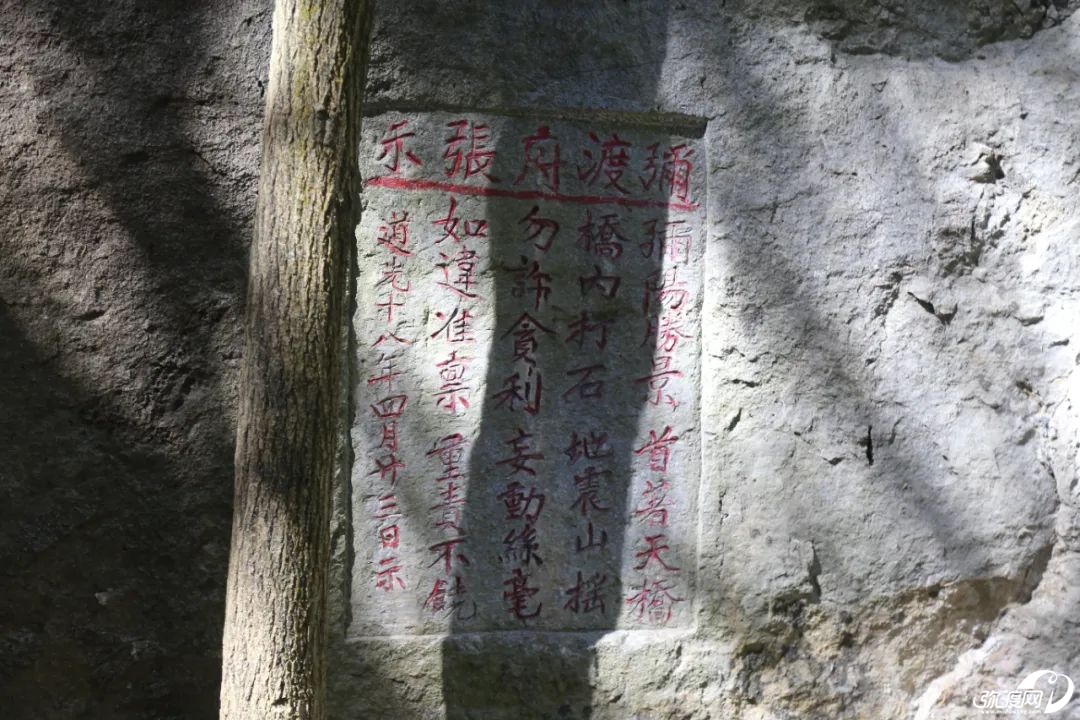 彌渡府張示
彌陽勝景首著天橋
橋內打石地震山摇
勿許貪利妄動絲毫
如違准禀重責不饒
道光十八年四月廿三日示
弥渡网